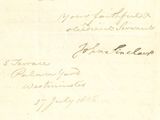 Yours faithful &
obedient Servant
John Sinclair
8 Terrace
Palace Yard
Westminster
27 July